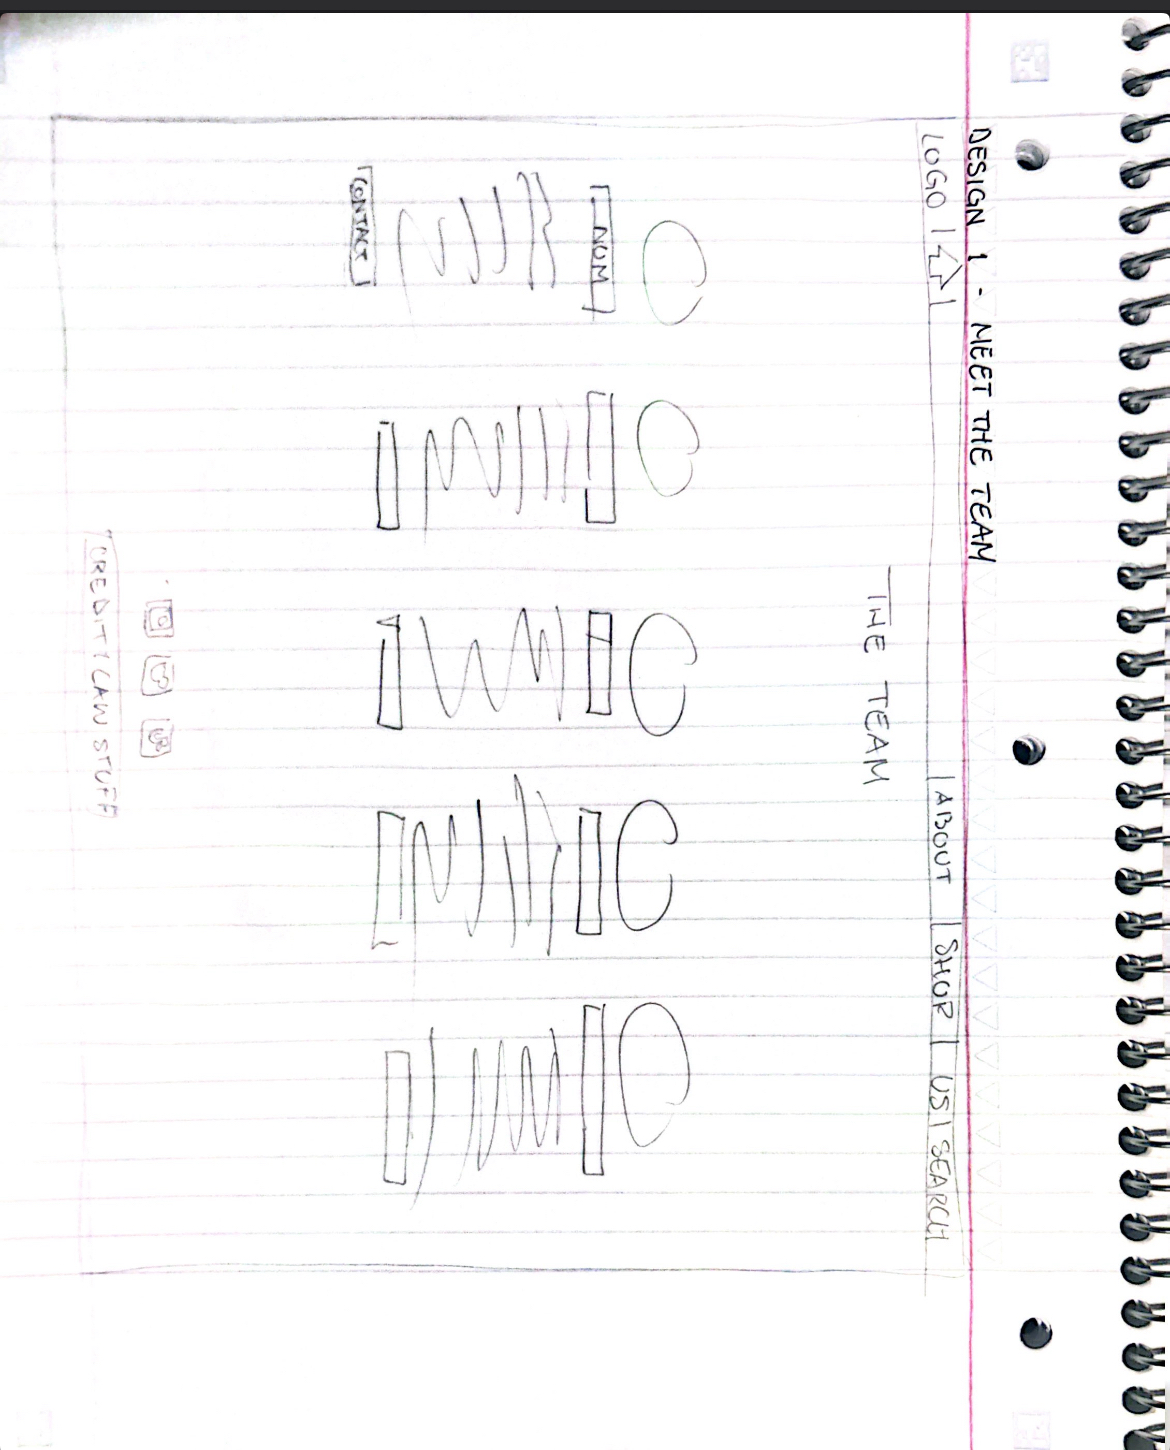 DESIGN 1 - MEET THE TEAM
LOGO ABOUT SHOP US SEARCH
THE TEAM
NOM
CONTACT